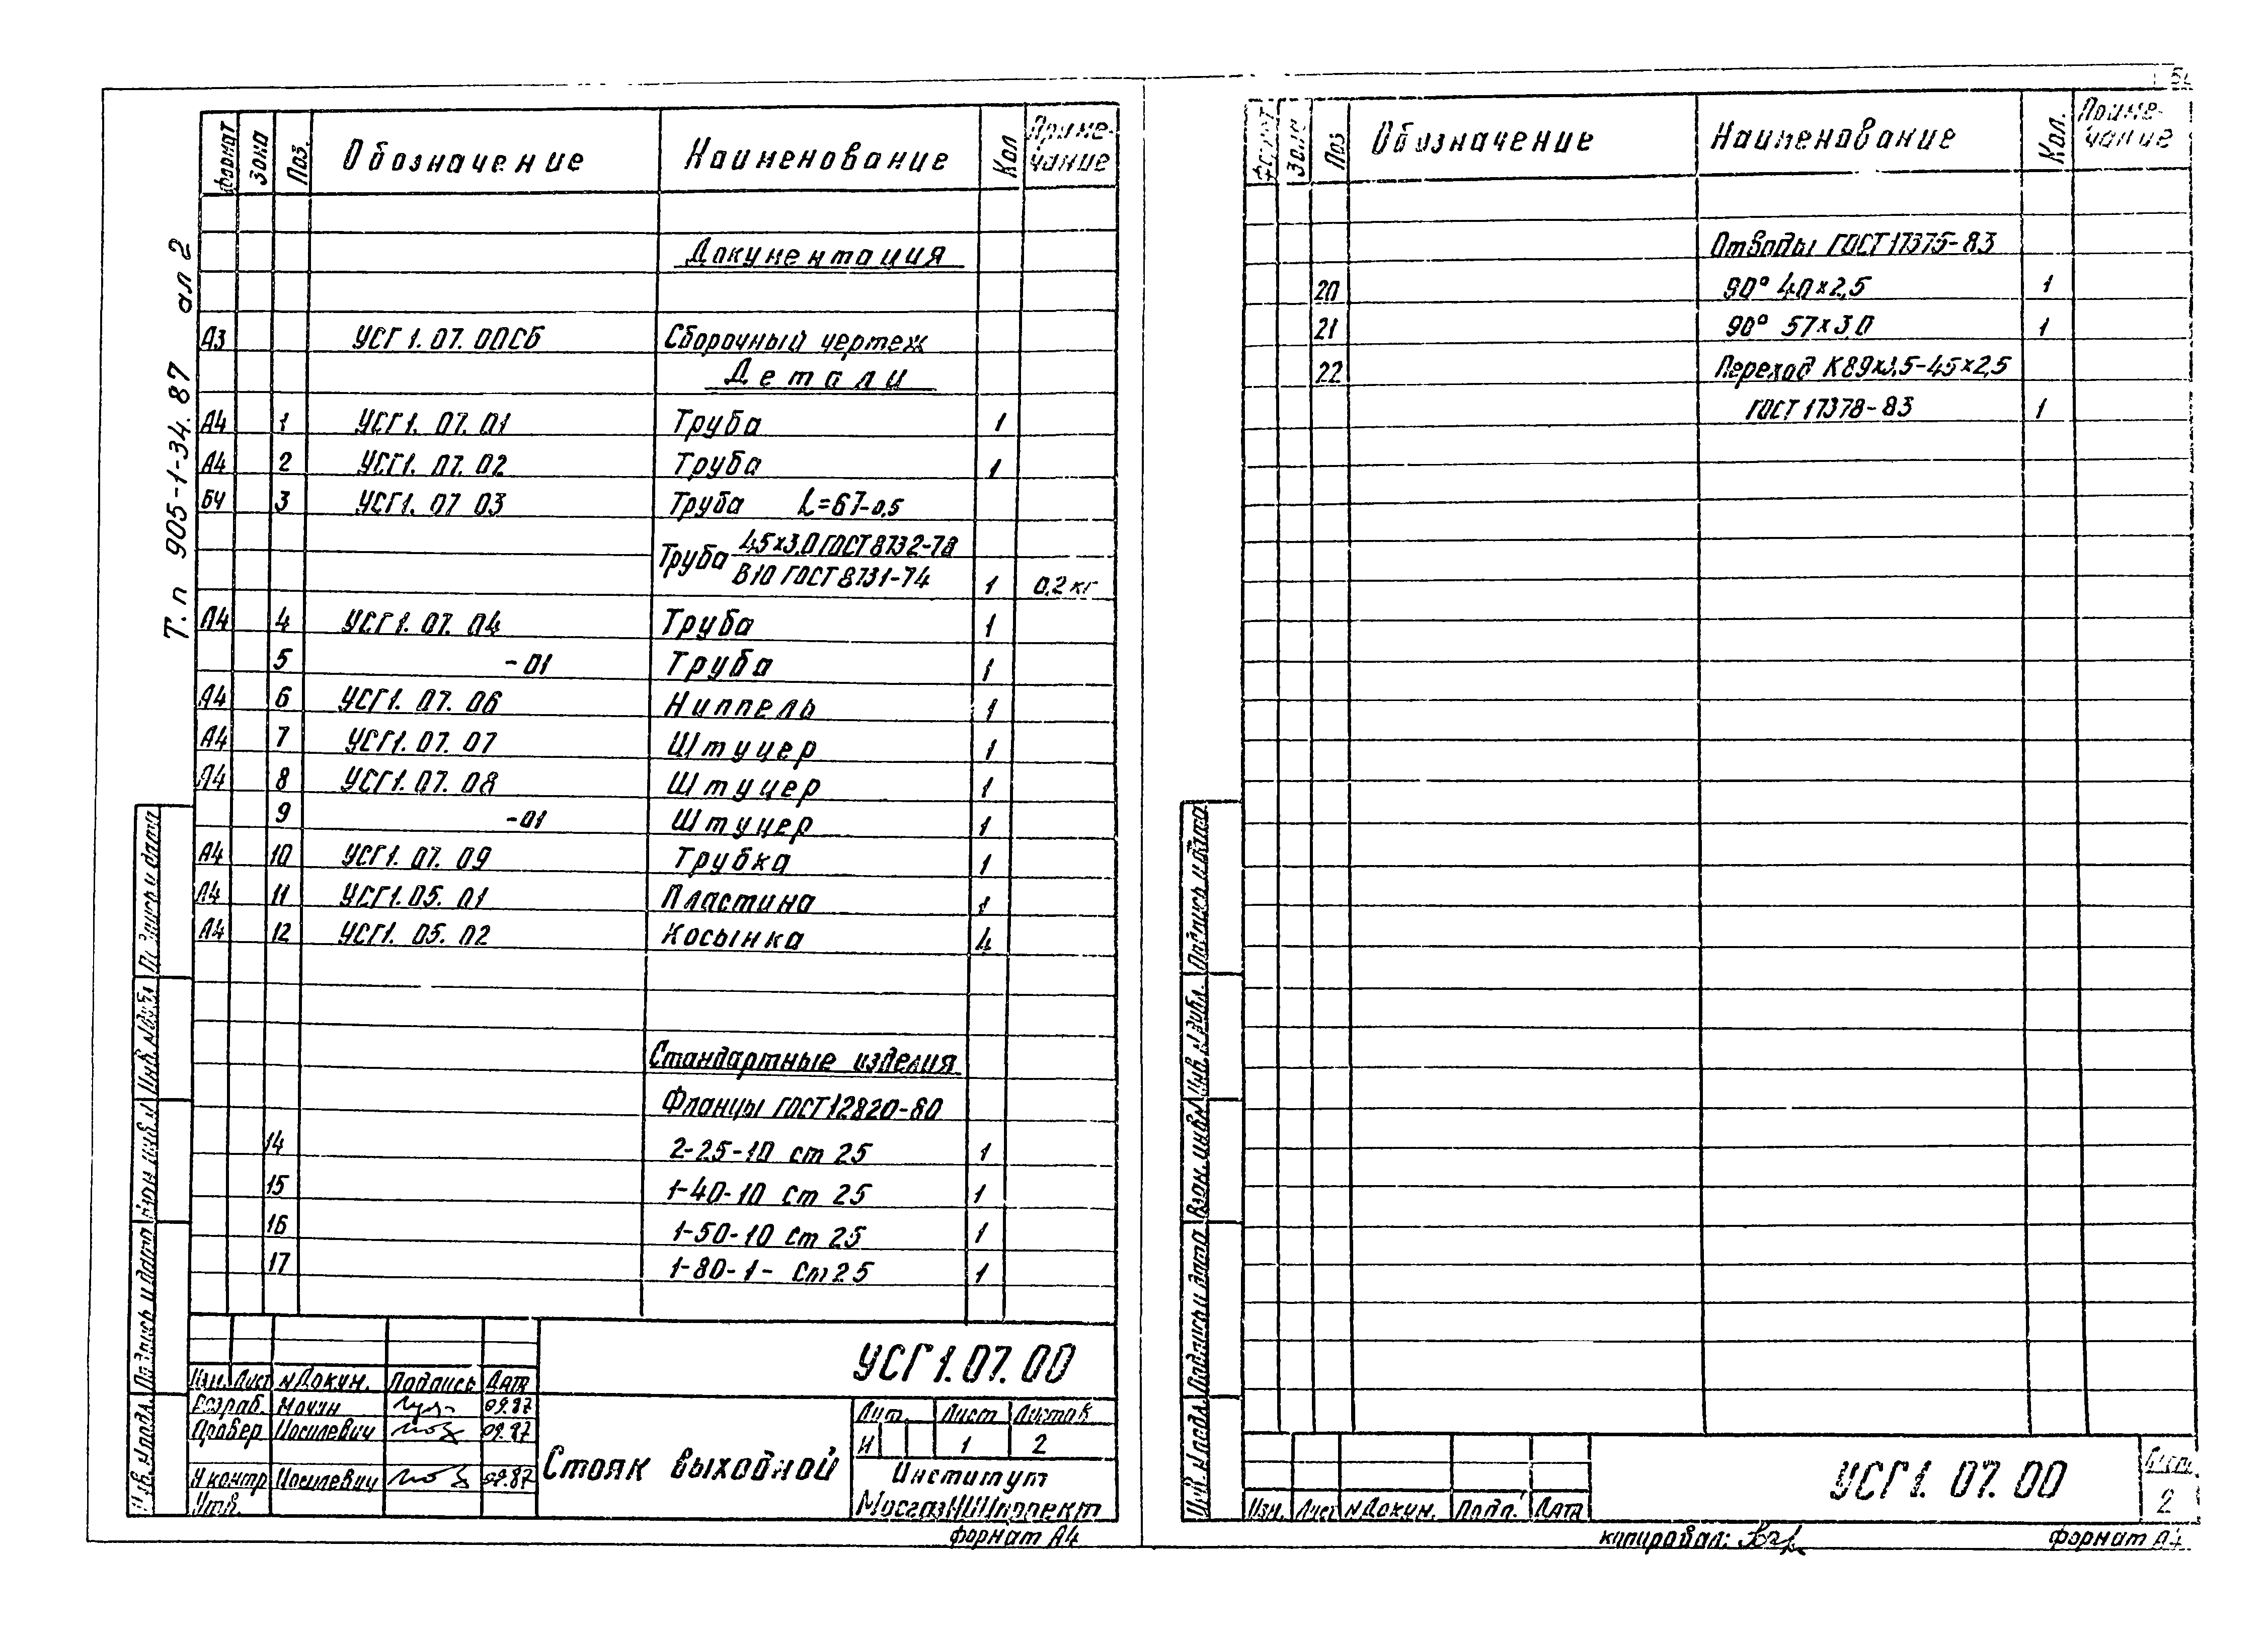 Т. п 905-1-34. 87 ал 2
Формат Зона Поз. Обозначение Наименование Кол Приме-
чание
Документация
А3 УСГ 1. 07. 00СБ Сборочный чертеж
Детали
А4 1 УСГ1. 07. 01 Труба 1
А4 2 УСГ1. 07. 02 Труба 1
БЧ 3 УСГ1. 07 03 Труба L=67-0,5
Труба 45×3,0 ГОСТ 8732-78
В10 ГОСТ 8731-74 1 0,2 кг
А4 4 УСГ1. 07. 04 Труба 1
5 -01 Труба 1
А4 6 УСГ1. 07. 06 Ниппель 1
А4 7 УСГ1. 07. 07 Штуцер 1
А4 8 УСГ1. 07. 08 Штуцер 1
9 -01 Штуцер 1
А4 10 УСГ1. 07. 09 Трубка 1
А4 11 УСГ1. 05. 01 Пластина 1
А4 12 УСГ1. 05. 02 Косынка 4
Стандартные изделия
Фланцы ГОСТ 12820-80
14 2-25-10 ст 25 1
15 1-40-10 Ст 25 1
16 1-50-10 Ст 25 1
17 1-80-1- Ст 25 1
Инв. № подл. Подпись и дата Взам инв. № Инв. № дубл. Подпись и дата
УСГ 1. 07. 00
Изм. Лист № Докум. Подпись Дата
Разраб. Мочин 09.87
Провер Иосилевич 09.87
Н контр Иосилевич 09.87
Утв.
Стояк выходной
Лит. Лист Листов
И 1 2
Институт
МосгазНИИпроект
формат А4
Формат Зона Поз Обозначение Наименование Кол. Приме-
чание
Отводы ГОСТ 17375-83
20 90° 40×2,5 1
21 90° 57×3,0 1
22 Переход К 89×3,5-45×2,5
ГОСТ 17378-83 1
Инв. № подл. Подпись и дата Взам. инв № Инв. № дубл. Подпись и дата
Изм. Лист № Докум. Подп. Дата
УСГ1. 07. 00
Лист
2
копировал: формат А4